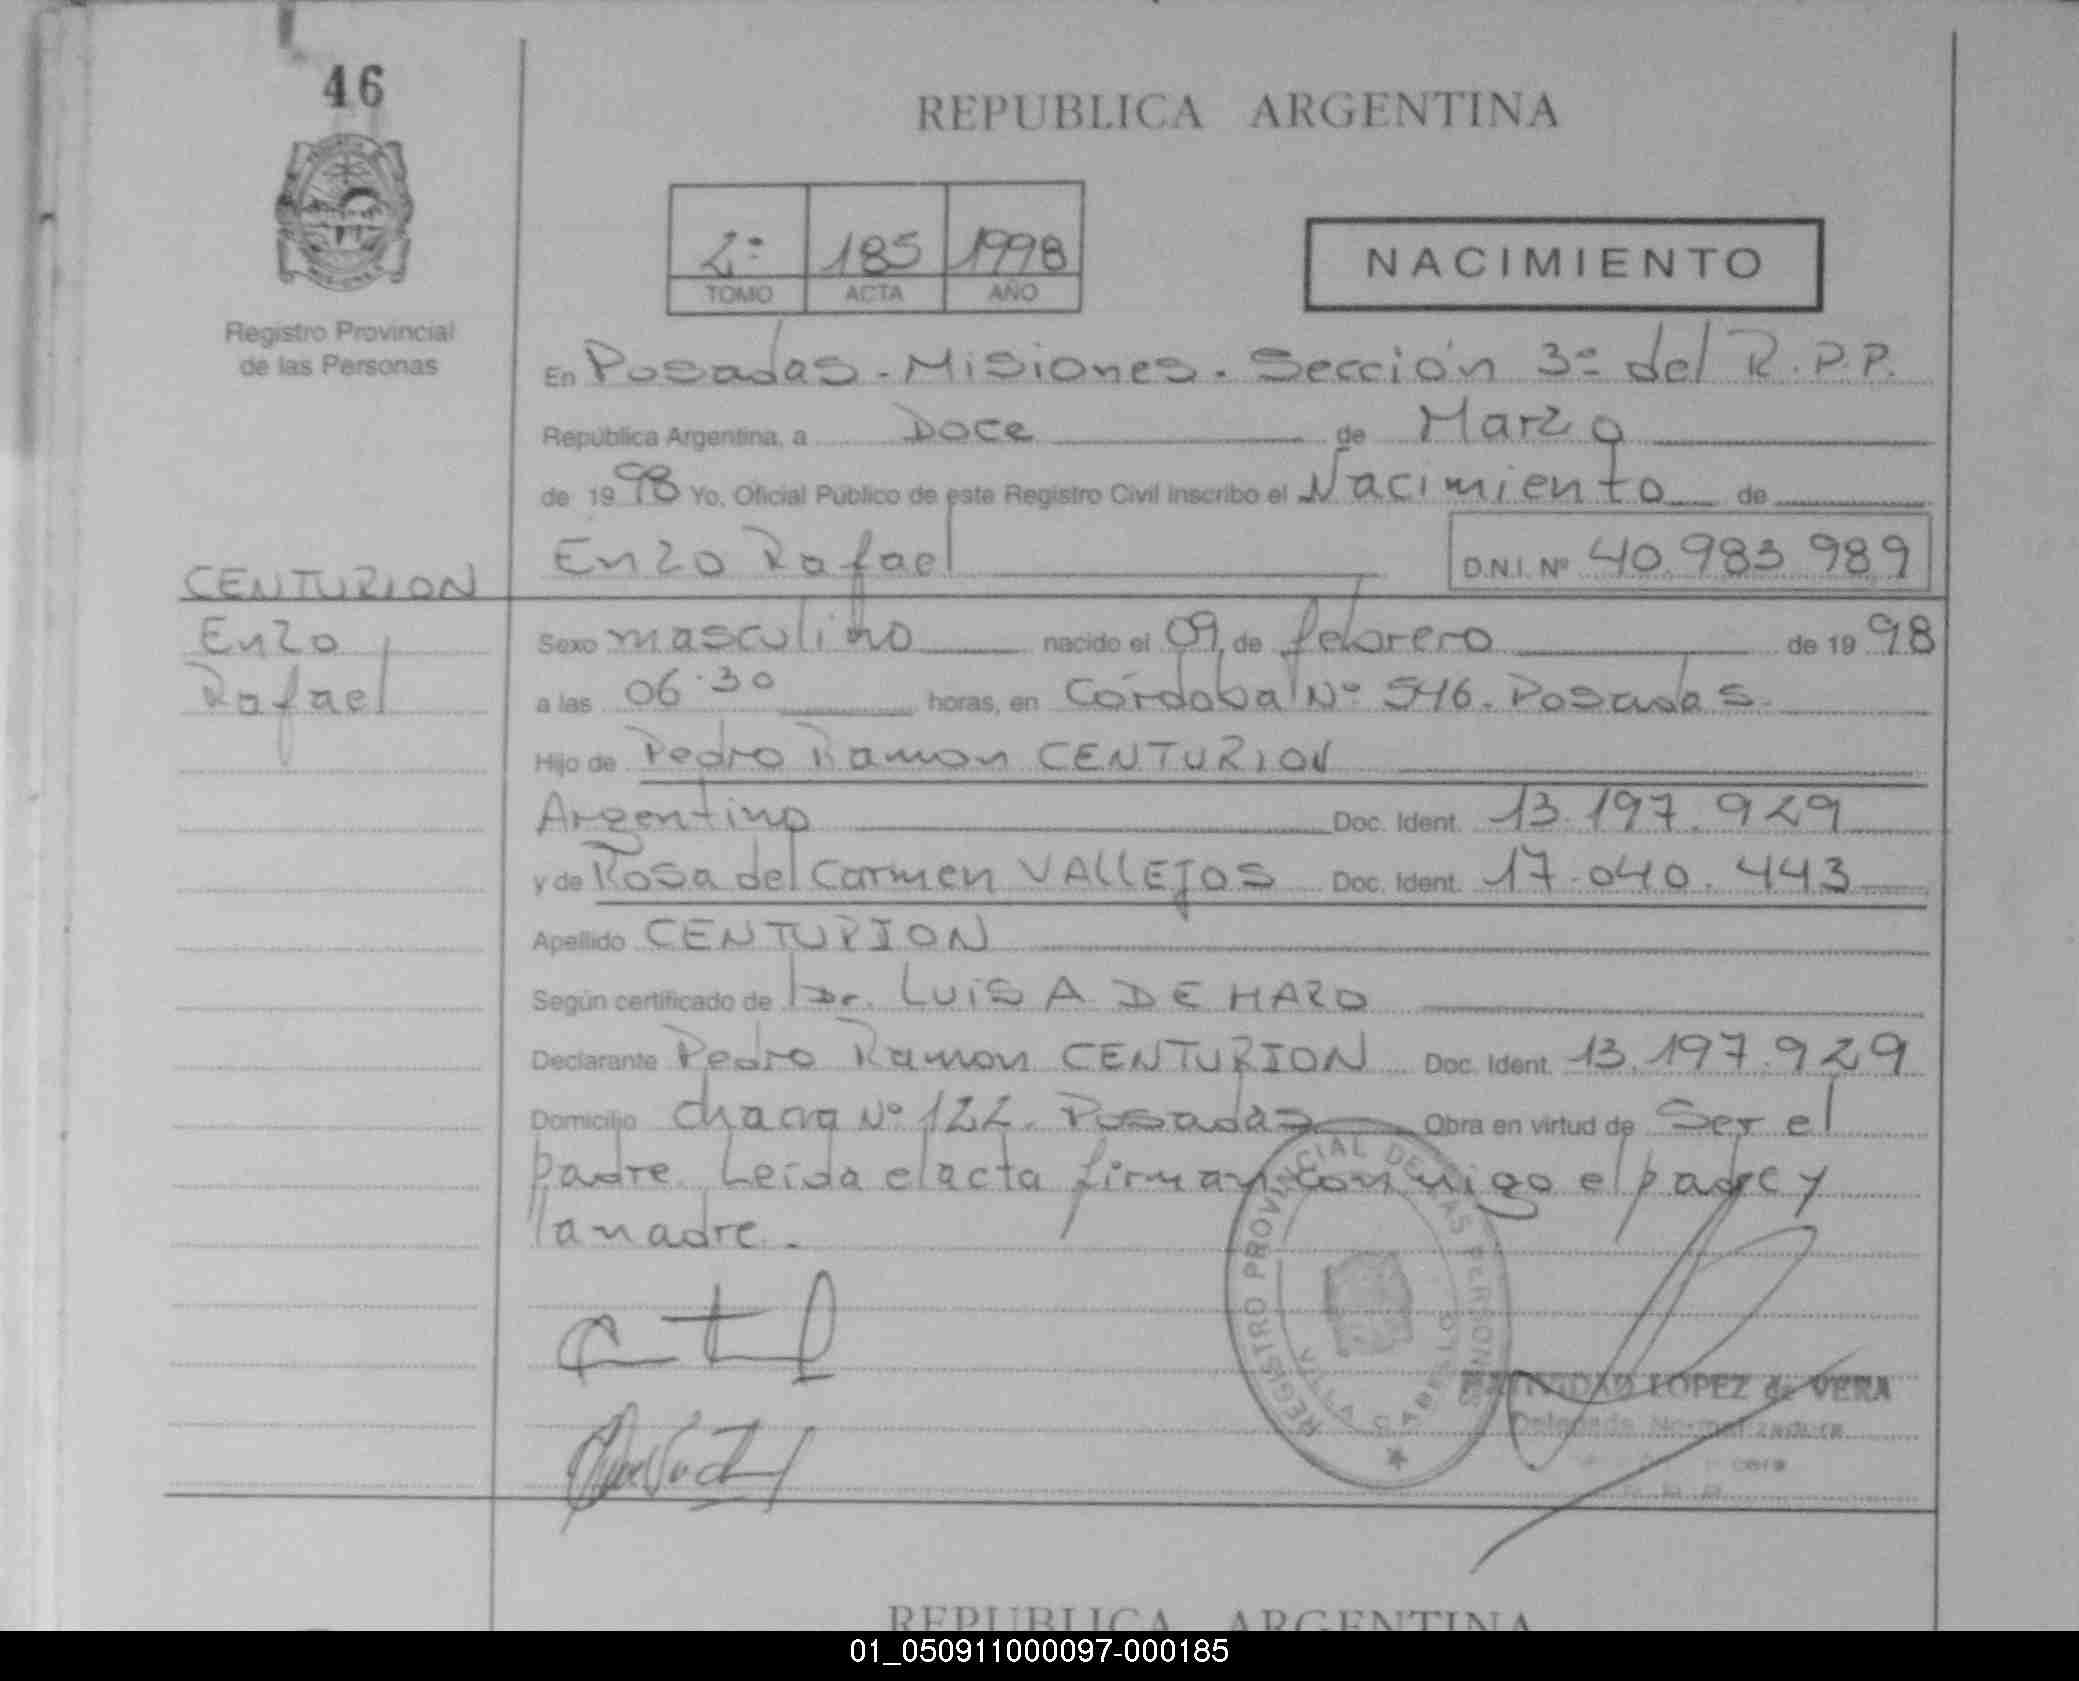 46
REPUBLICA ARGENTINA
2º 185 1998
TOMO ACTA AÑO
NACIMIENTO
Registro Provincial
de las Personas
En Posadas - Misiones. Sección 3º del R.P.P.
República Argentina, a Doce de Marzo
de 1998 Yo, Oficial Público de este Registro Civil inscribo el Nacimiento de
Enzo Rafael D.N.I. Nº 40.983.989
CENTURION
Enzo
Rafael
Sexo masculino nacido el 09 de febrero de 1998
a las 06:30 horas, en Córdoba Nº 546. Posadas.
Hijo de Pedro Ramon CENTURION
Argentino Doc. Ident. 13.197.929
y de Rosa del Carmen VALLEJOS Doc. Ident. 17.040.443
Apellido CENTURION
Según certificado de Dr. LUIS A DE HARO
Declarante Pedro Ramon CENTURION Doc. Ident. 13.197.929
Domicilio chacra Nº 122. Posadas Obra en virtud de Ser el
padre. Leída el acta firman conmigo el padre y
la madre.
REGISTRO PROVINCIAL DE LAS PERSONAS
VILLA CABELLO
LOPEZ de VERA
Delegada Normalizadora
REPUBLICA ARGENTINA
01_050911000097-000185